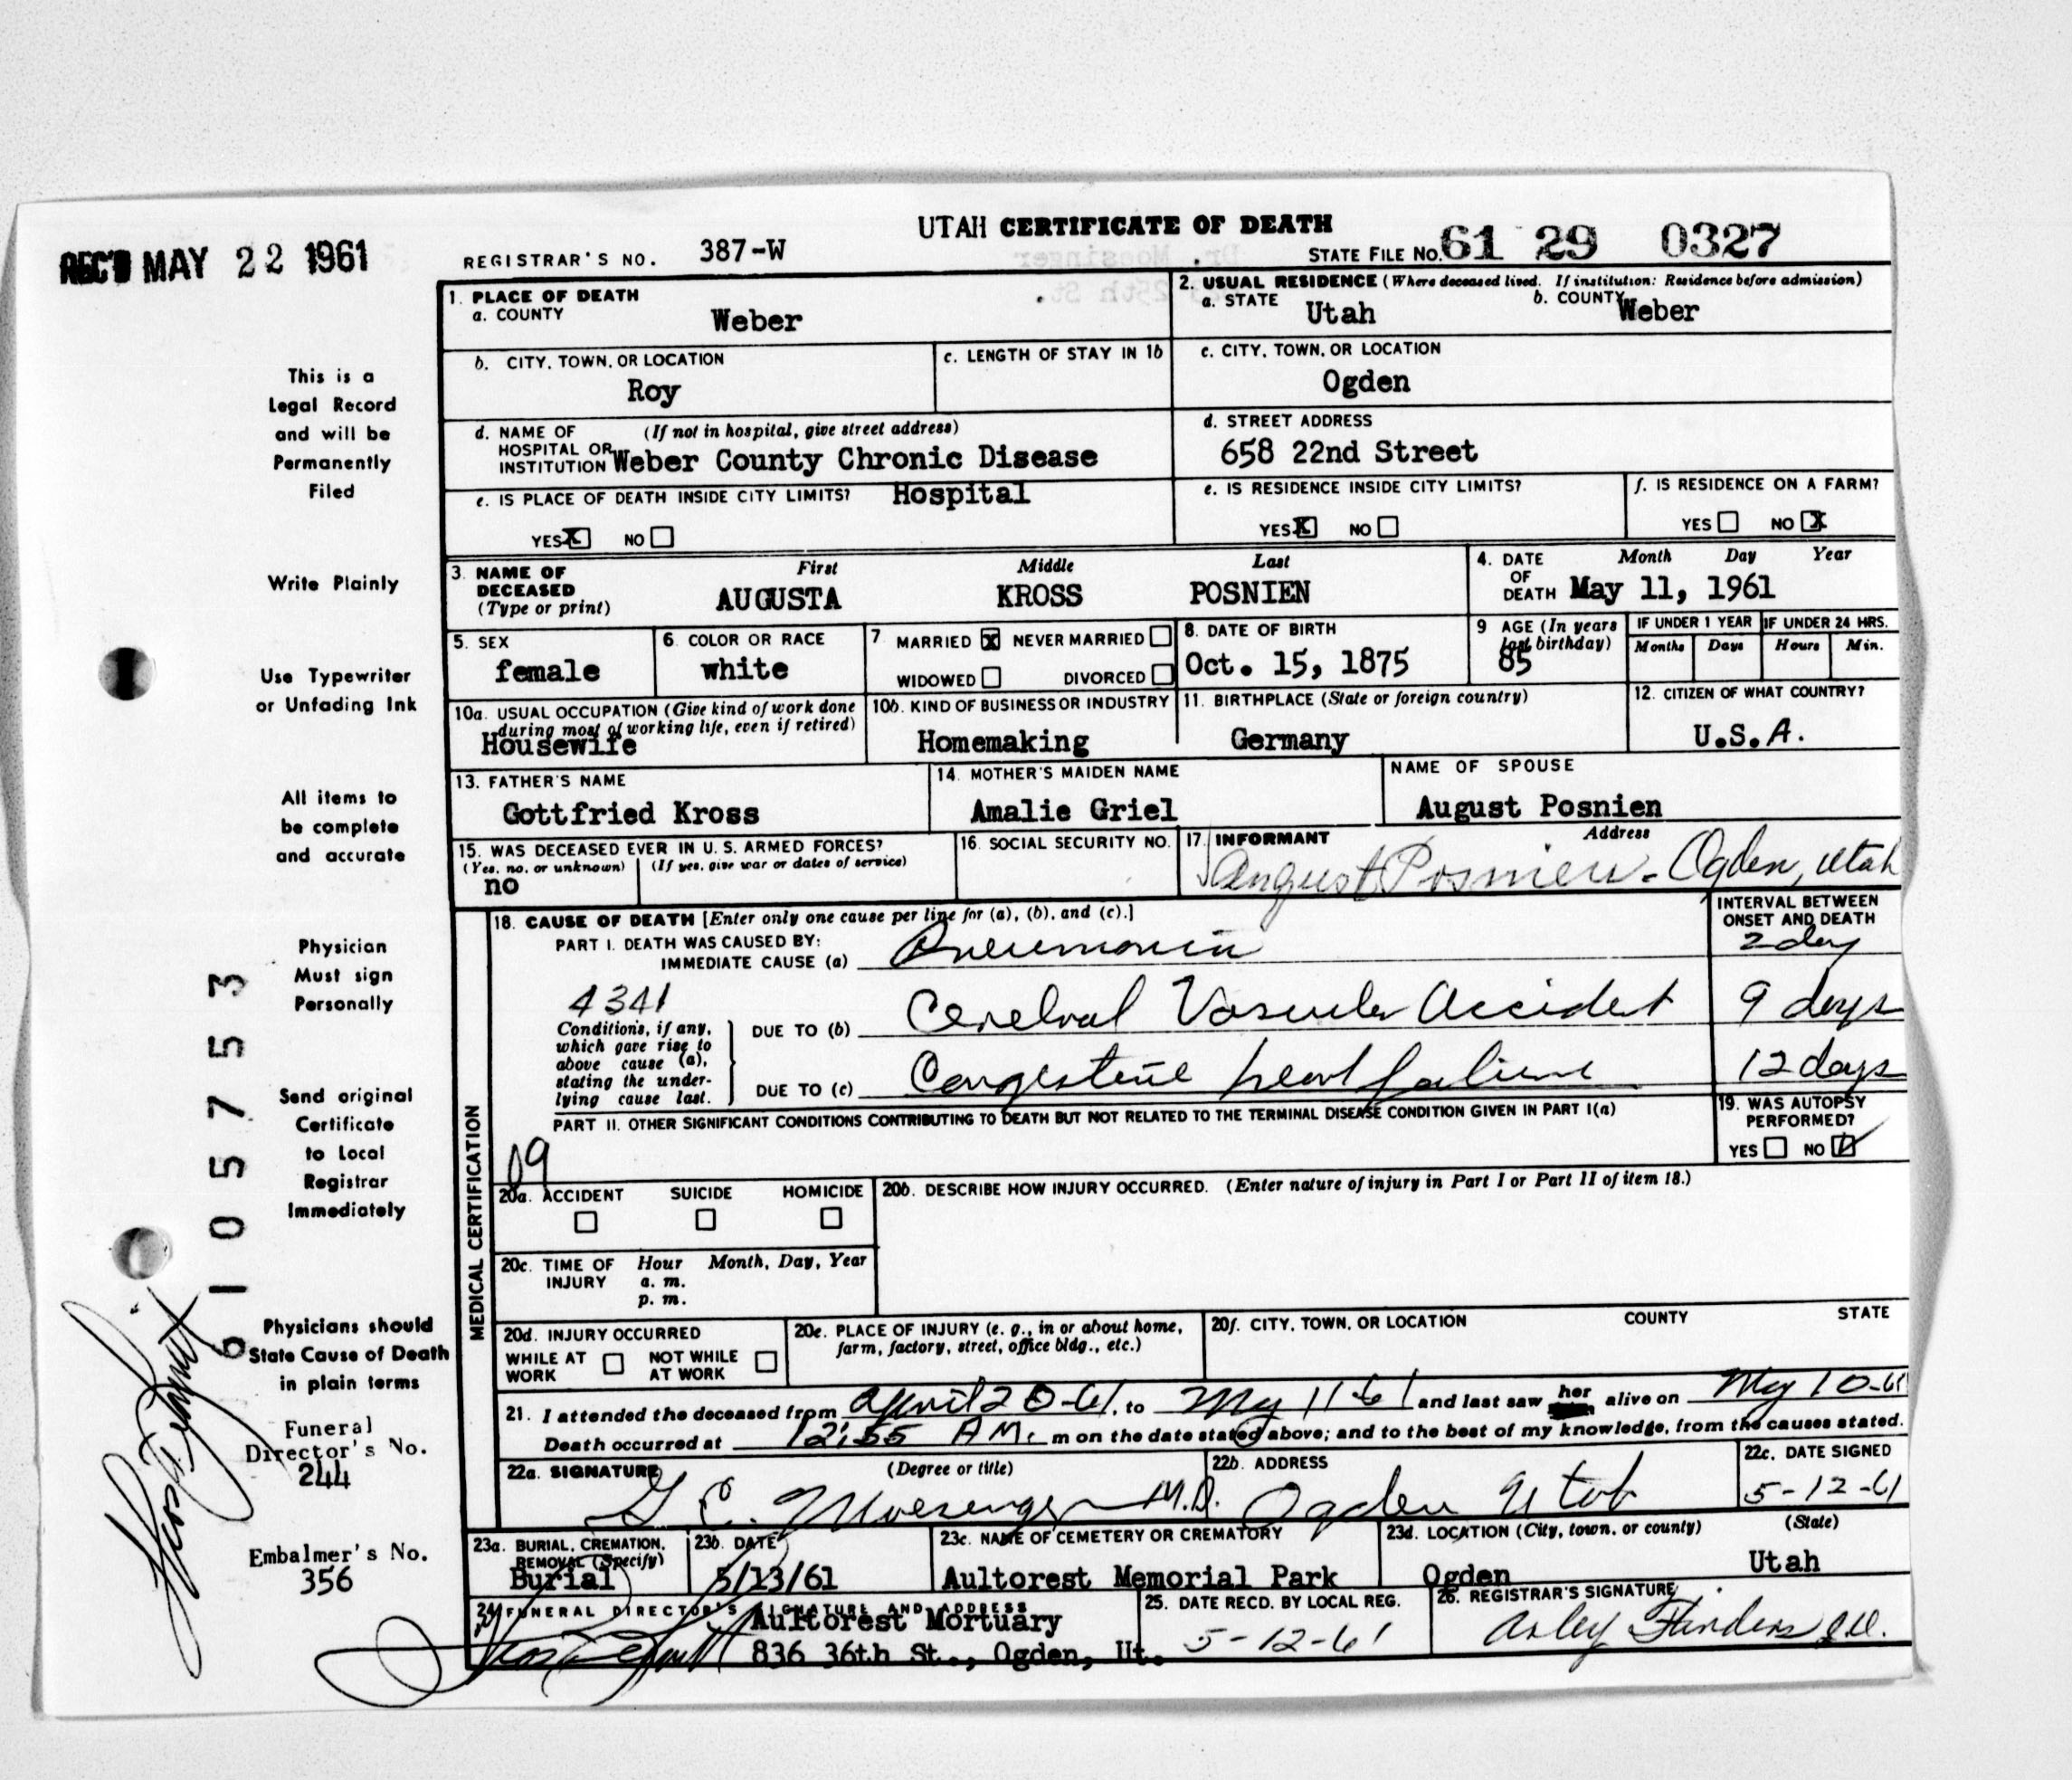 UTAH CERTIFICATE OF DEATH
REC'D MAY 22 1961
REGISTRAR'S NO. 387-W
STATE FILE NO. 61 29 0327
1. PLACE OF DEATH
a. COUNTY
Weber
2. USUAL RESIDENCE (Where deceased lived. If institution: Residence before admission)
a. STATE Utah
b. COUNTY Weber
b. CITY, TOWN, OR LOCATION
Roy
c. LENGTH OF STAY IN 1b
c. CITY, TOWN, OR LOCATION
Ogden
d. NAME OF (If not in hospital, give street address)
HOSPITAL OR
INSTITUTION Weber County Chronic Disease
Hospital
d. STREET ADDRESS
658 22nd Street
e. IS PLACE OF DEATH INSIDE CITY LIMITS?
YES X NO
e. IS RESIDENCE INSIDE CITY LIMITS?
YES X NO
f. IS RESIDENCE ON A FARM?
YES NO X
3. NAME OF
DECEASED
(Type or print)
First Middle Last
AUGUSTA KROSS POSNIEN
4. DATE
OF
DEATH
Month Day Year
May 11, 1961
5. SEX
female
6. COLOR OR RACE
white
7. MARRIED X NEVER MARRIED
WIDOWED DIVORCED
8. DATE OF BIRTH
Oct. 15, 1875
9 AGE (In years
last birthday)
85
IF UNDER 1 YEAR
Months Days
IF UNDER 24 HRS.
Hours Min.
10a. USUAL OCCUPATION (Give kind of work done
during most of working life, even if retired)
Housewife
10b. KIND OF BUSINESS OR INDUSTRY
Homemaking
11. BIRTHPLACE (State or foreign country)
Germany
12. CITIZEN OF WHAT COUNTRY?
U.S.A.
13. FATHER'S NAME
Gottfried Kross
14. MOTHER'S MAIDEN NAME
Amalie Griel
NAME OF SPOUSE
August Posnien
15. WAS DECEASED EVER IN U.S. ARMED FORCES?
(Yes, no, or unknown) (If yes, give war or dates of service)
no
16. SOCIAL SECURITY NO.
17. INFORMANT Address
August Posnien - Ogden, Utah
18. CAUSE OF DEATH [Enter only one cause per line for (a), (b), and (c).]
INTERVAL BETWEEN
ONSET AND DEATH
PART I. DEATH WAS CAUSED BY:
IMMEDIATE CAUSE (a) Pneumonia 2 day
4341
Conditions, if any,
which gave rise to
above cause (a),
stating the under-
lying cause last.
DUE TO (b) Cerebral Vascular Accident 9 days
DUE TO (c) Congestive heart failure 12 days
PART II. OTHER SIGNIFICANT CONDITIONS CONTRIBUTING TO DEATH BUT NOT RELATED TO THE TERMINAL DISEASE CONDITION GIVEN IN PART I(a)
19. WAS AUTOPSY
PERFORMED?
YES NO
MEDICAL CERTIFICATION
20a. ACCIDENT SUICIDE HOMICIDE
20b. DESCRIBE HOW INJURY OCCURRED. (Enter nature of injury in Part I or Part II of item 18.)
20c. TIME OF
INJURY
Hour Month, Day, Year
a. m.
p. m.
20d. INJURY OCCURRED
WHILE AT
WORK
NOT WHILE
AT WORK
20e. PLACE OF INJURY (e. g., in or about home,
farm, factory, street, office bldg., etc.)
20f. CITY, TOWN, OR LOCATION COUNTY STATE
21. I attended the deceased from April 28-61, to May 11 61 and last saw her alive on May 10-61
Death occurred at 12:55 A M. m on the date stated above; and to the best of my knowledge, from the causes stated.
22a. SIGNATURE (Degree or title)
G C. Moesinger M.D.
22b. ADDRESS
Ogden Utah
22c. DATE SIGNED
5-12-61
23a. BURIAL, CREMATION,
REMOVAL (Specify)
Burial
23b. DATE
5/13/61
23c. NAME OF CEMETERY OR CREMATORY
Aultorest Memorial Park
23d. LOCATION (City, town, or county) (State)
Ogden Utah
24. FUNERAL DIRECTOR'S SIGNATURE AND ADDRESS
Aultorest Mortuary
836 36th St., Ogden, Ut.
25. DATE RECD. BY LOCAL REG.
5-12-61
26. REGISTRAR'S SIGNATURE
Arley Flinders
This is a
Legal Record
and will be
Permanently
Filed
Write Plainly
Use Typewriter
or Unfading Ink
All items to
be complete
and accurate
Physician
Must sign
Personally
Send original
Certificate
to Local
Registrar
Immediately
Physicians should
State Cause of Death
in plain terms
Funeral
Director's No.
244
Embalmer's No.
356
61057753